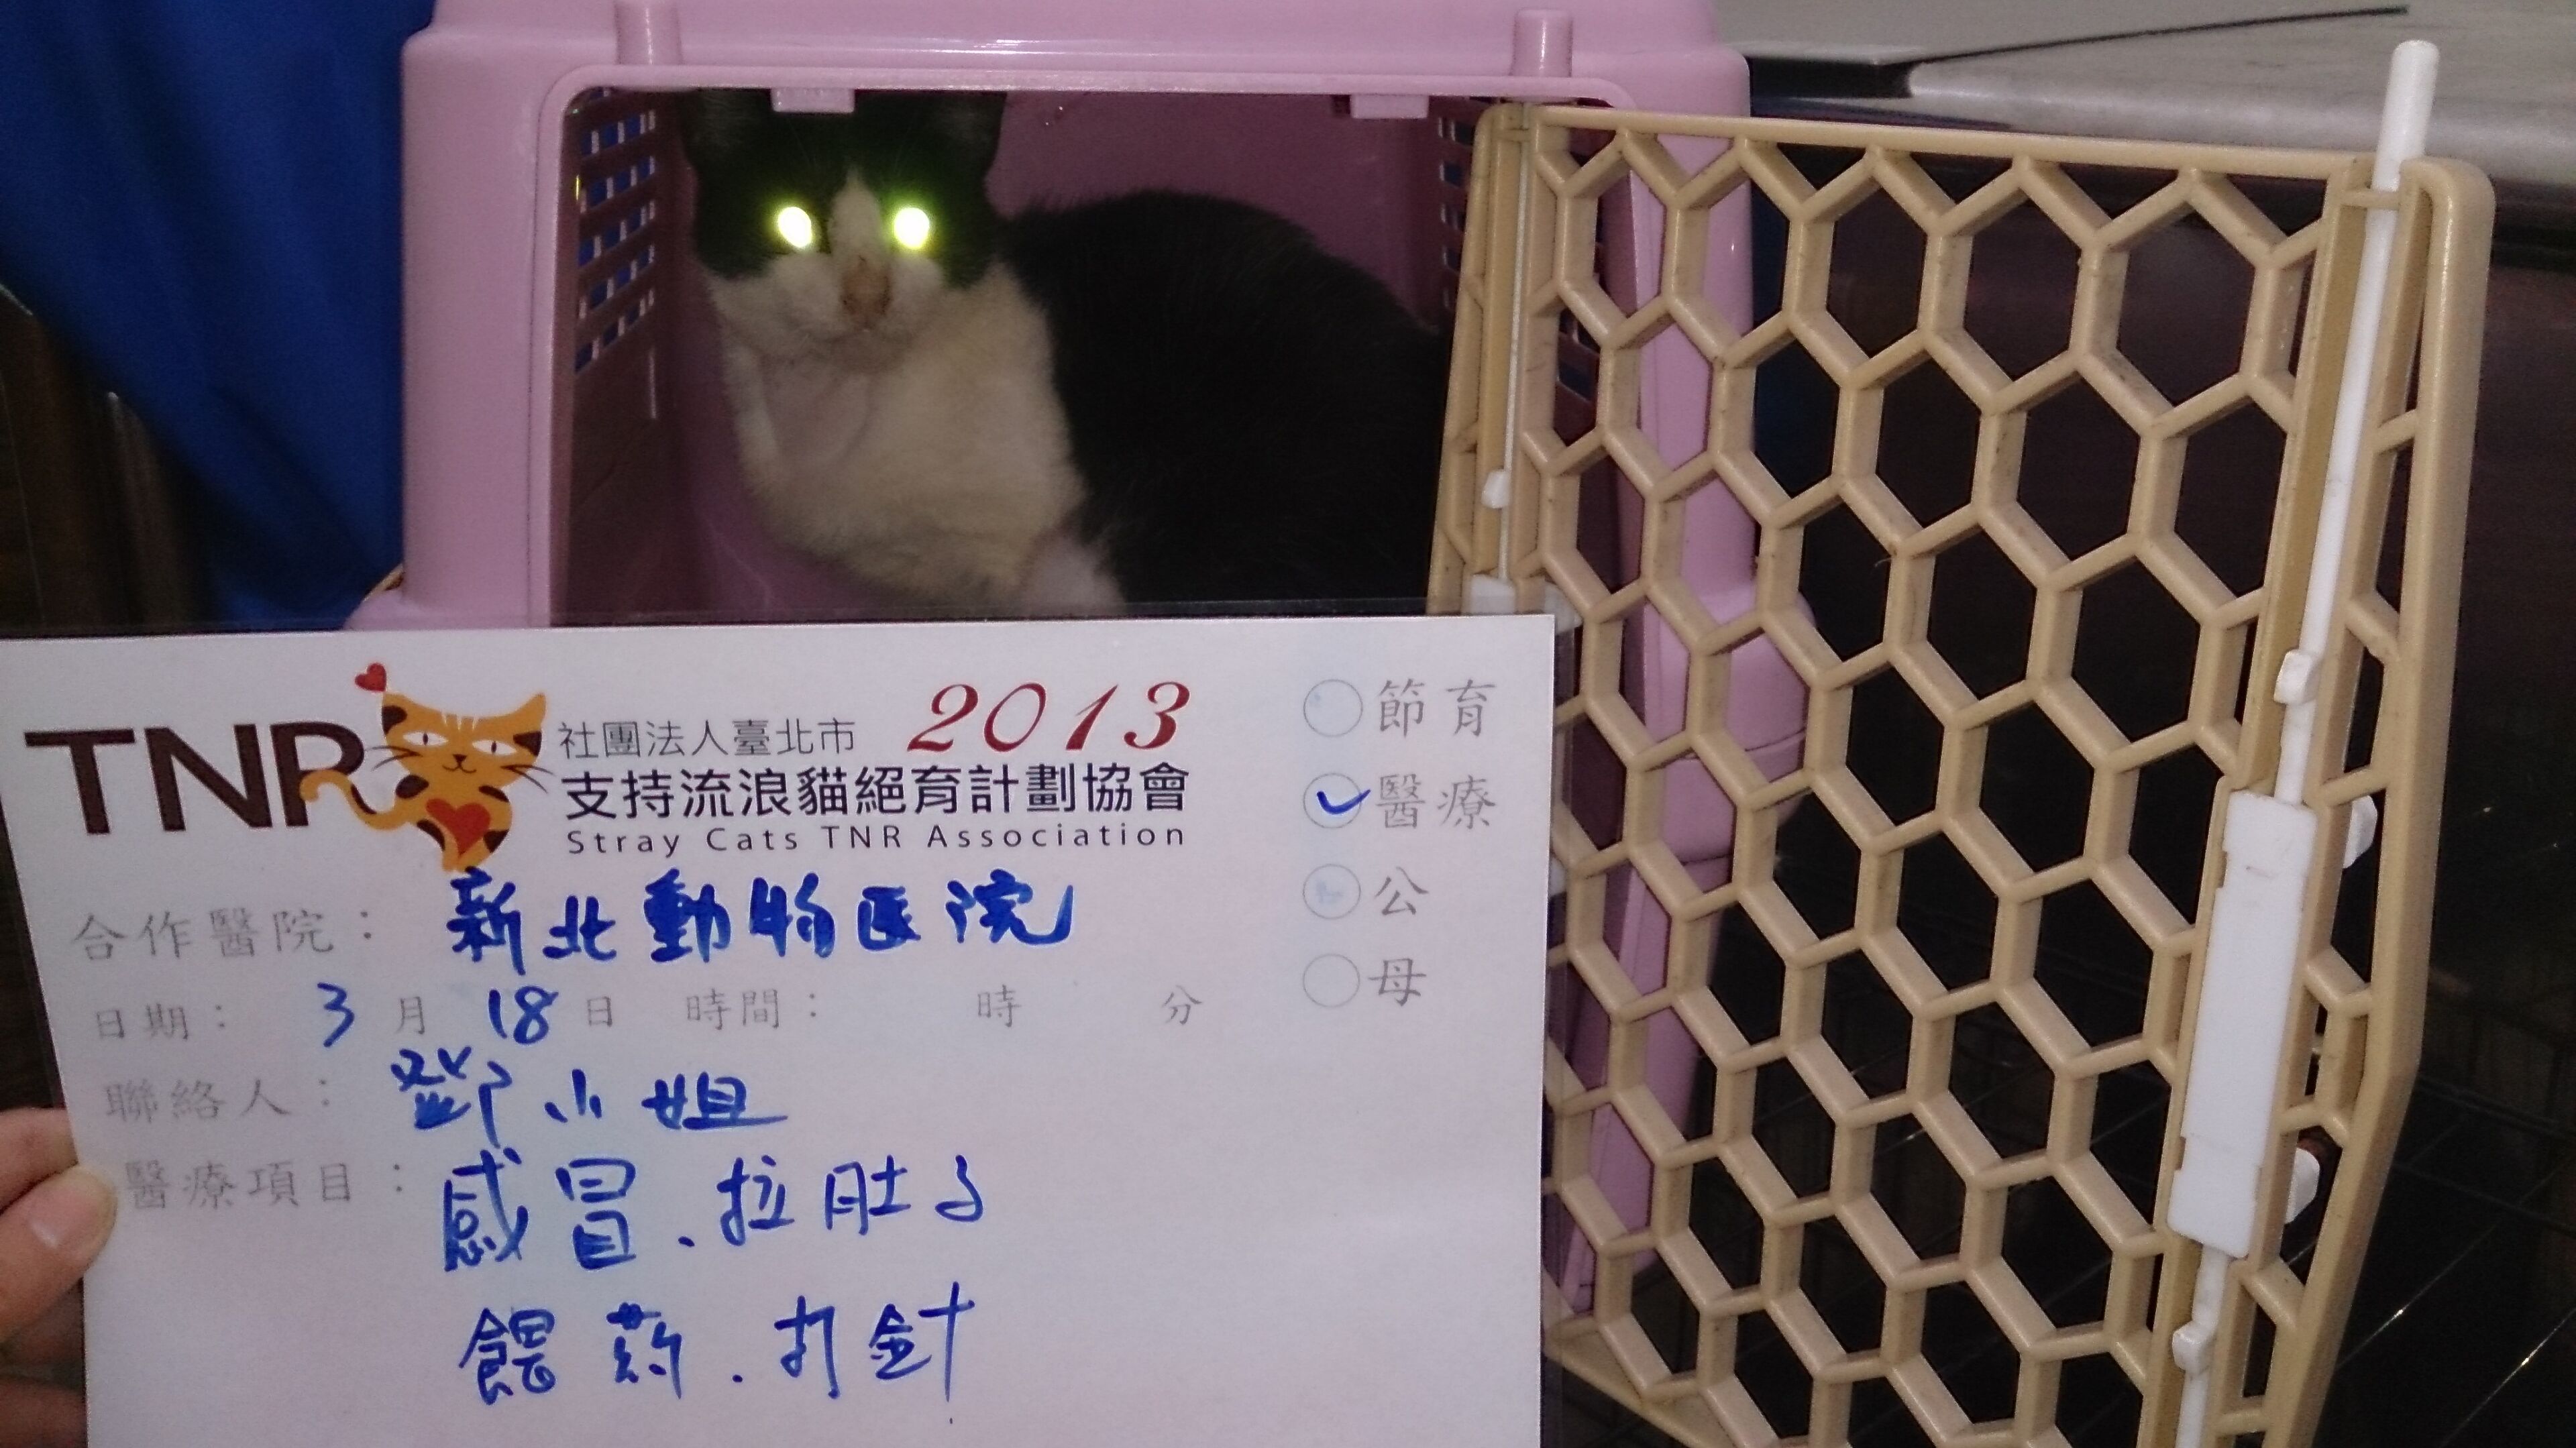 TNR
社團法人臺北市 2013
支持流浪貓絕育計劃協會
Stray Cats TNR Association
節育
醫療
公
母
合作醫院： 新北動物医院
日期： 3 月 18 日 時間： 時 分
聯絡人： 鄧小姐
醫療項目： 感冒、拉肚子
餵葯、打針